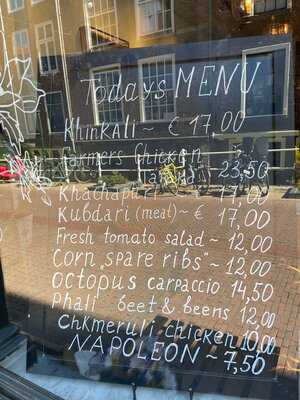 Todays MENU
Khinkali ~ € 17,00
Farmers Chicken
23,50
Khachapuri 17,00
Kubdari (meat) ~ € 17,00
Fresh tomato salad ~ 12,00
Corn „spare ribs" ~ 12,00
Octopus carpaccio 14,50
Phali beet & beens 12,00
Chkmeruli chicken 10,00
NAPOLEON ~ 7,50